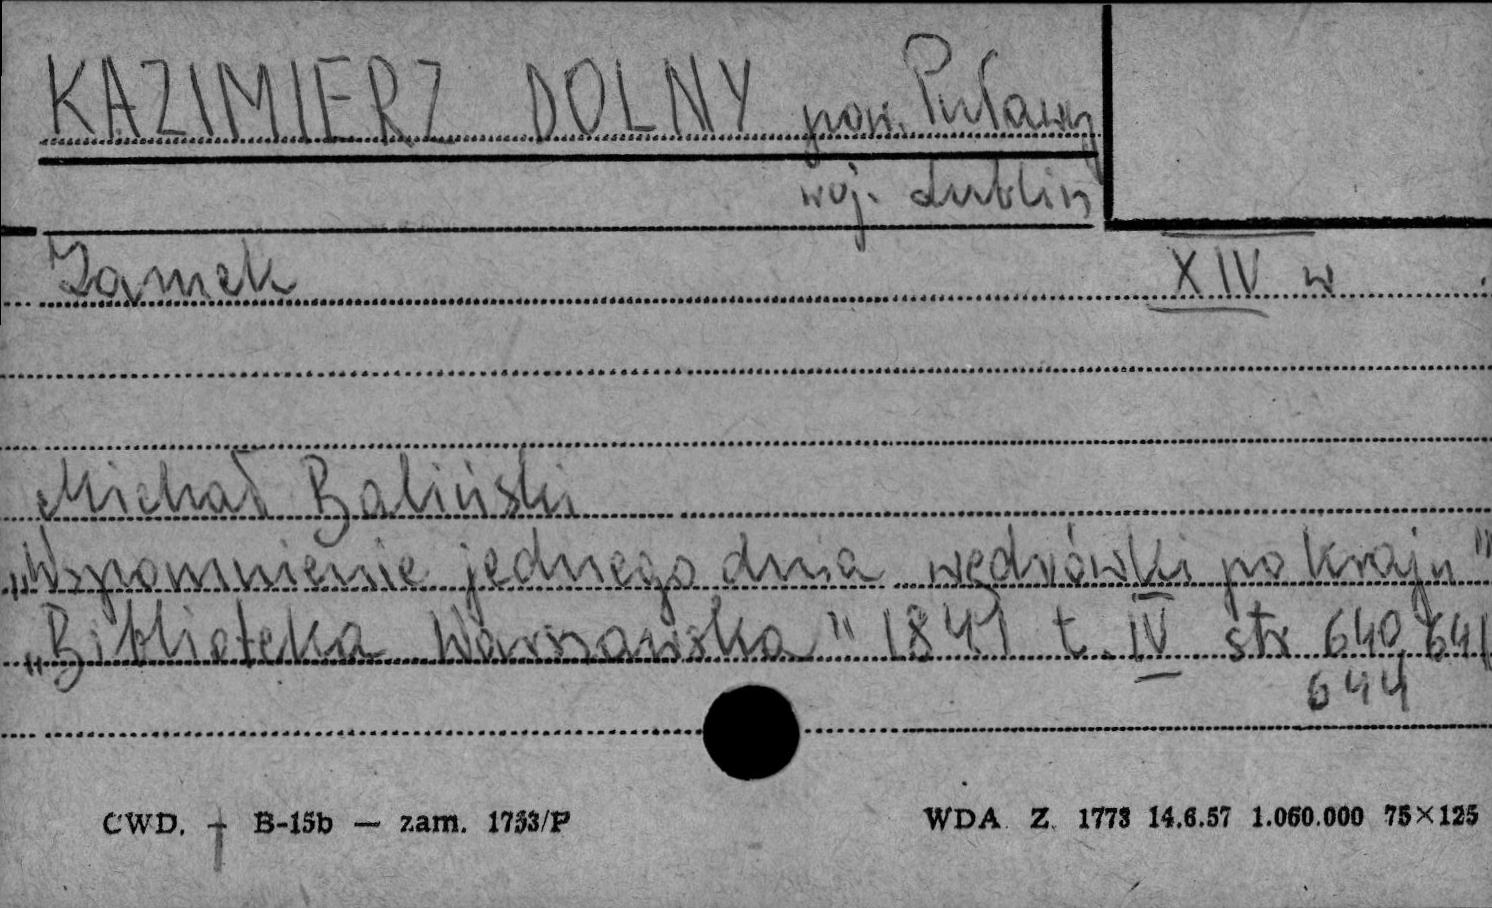 KAZIMIERZ DOLNY pow. Puławy
woj. Lublin
Zamek XIV w.
Michał Baliński
„Wspomnienie jednego dnia wędrówki po kraju"
„Biblioteka Warszawska" 1841 t. IV str 640, 641
644
CWD. B-15b — zam. 1753/P WDA Z. 1773 14.6.57 1.060.000 75×125